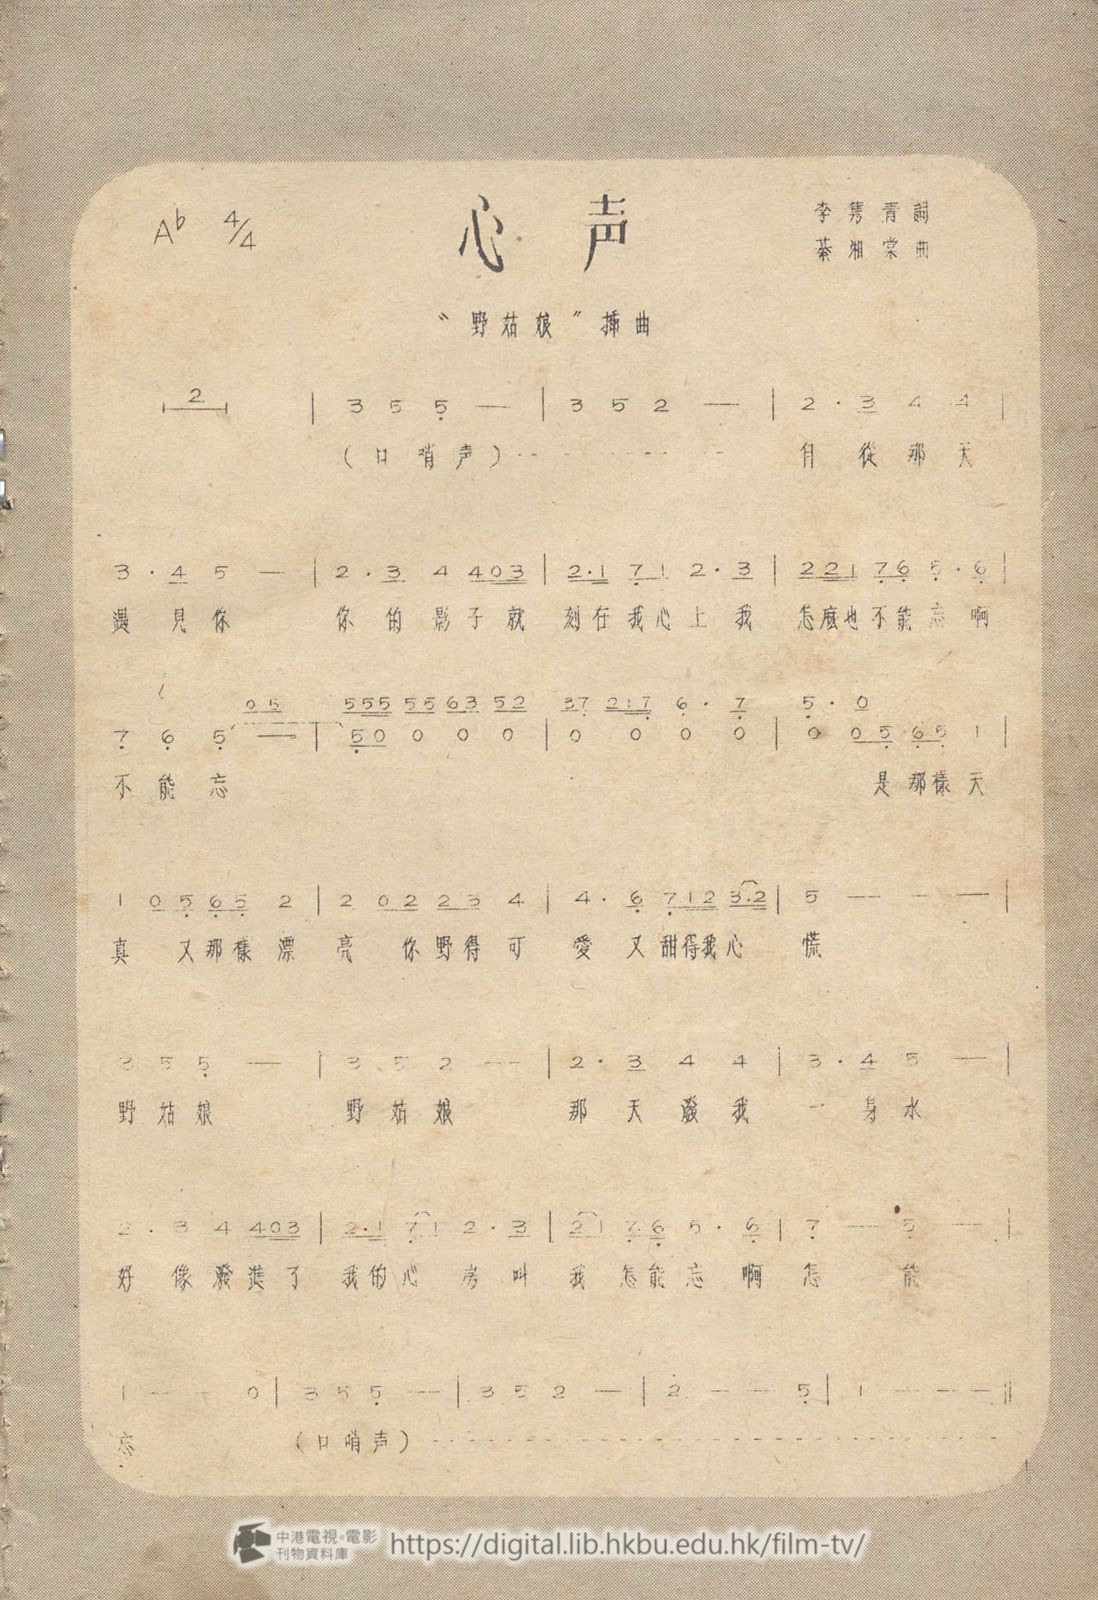 Ab 4/4
心声
李雋青詞
綦湘棠曲
“野姑娘”插曲
2 | 3 5 5 — | 3 5 2 — | 2 · 3 4 4 |
(口哨声)
自從那天
3 · 4 5 — | 2 · 3 4 403 | 2·1 71 2·3 | 221 76 5·6 |
遇見你 你的影子就 刻在我心上我 怎麼也不能忘啊
05 555 55 63 52 37 217 6·7 5·0
7 6 5 — | 50 0 0 0 | 0 0 0 0 | 0 05 65 1 |
不能忘 是那樣天
1 05 65 2 | 2 02 23 4 | 4· 6 712 3·2 | 5 — — — |
真 又那樣漂 亮 你野得可 愛又甜得我心 慌
3 5 5 — | 3 5 2 — | 2 · 3 4 4 | 3 · 4 5 — |
野姑娘 野姑娘 那天潑我 一身水
2 · 3 4 403 | 2·1 71 2·3 | 21 76 5·6 | 7 — 5 — |
好像潑進了 我的心房叫 我怎能忘啊 怎能
1 — — 0 | 3 5 5 — | 3 5 2 — | 2 — — 5 | 1 — — — ||
忘 (口哨声)
中港電視·電影
刊物資料庫
https://digital.lib.hkbu.edu.hk/film-tv/